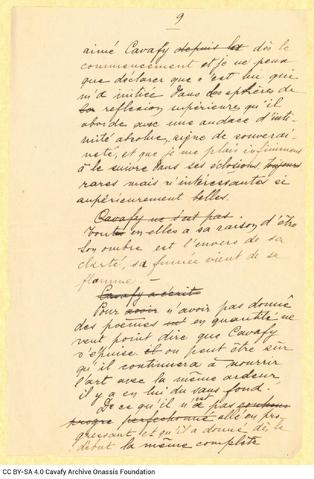 9
aimé Cavafy depuis les dès le
commencement et je ne peux
que déclarer que c'est lui qui
m'a initiée dans des sphères de
la reflexion supérieure qu'il
aborde avec une audace d'inti-
mité absolue, signe de souverai-
neté, et que je me plais infiniment
à le suivre dans ses éclosions toujours
rares mais si intéressantes si
supérieurement belles.
Cavafy ne sait pas.
Tout en elles a sa raison d'être
Son ombre est l'envers de sa
clarté, sa fumée vient de sa
flamme. —
Cavafy a écrit
Pour avoir n'avoir pas donné
des poèmes en quantité ne
veut point dire que Cavafy
s'épuise et on peut être sûr
qu'il continuera à nourrir
l'art avec la même ardeur
il y a en lui du sans fond.
De ce qu'il n'a pas
presque perfectionné elle en pro-
gressant et qu'il a donné dès le
début la même complète
CC BY-SA 4.0 Cavafy Archive Onassis Foundation